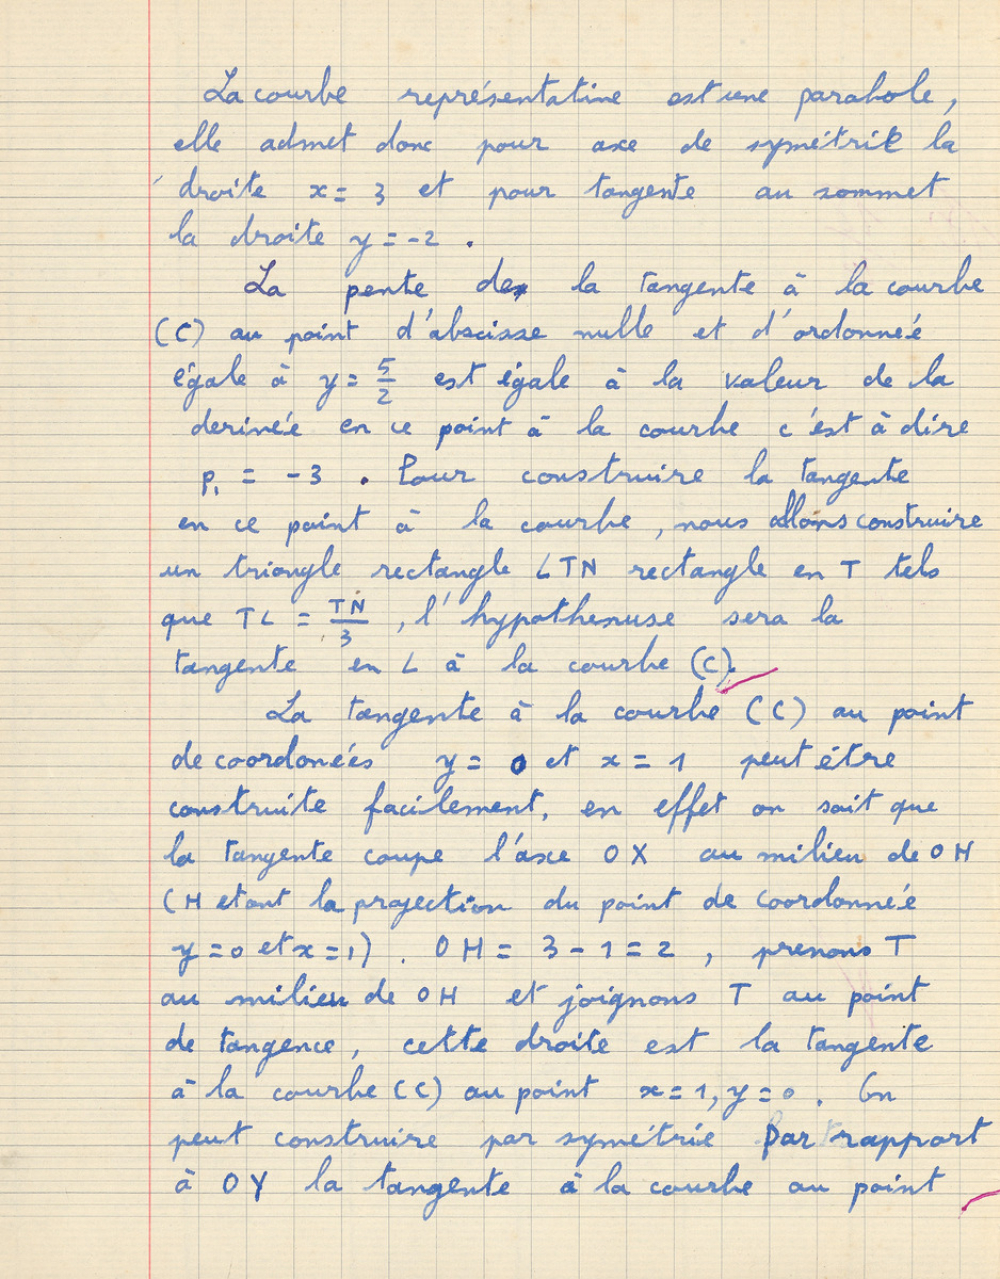 La courbe représentative est une parabole,
elle admet donc pour axe de symétrie la
droite x = 3 et pour tangente au sommet
la droite y = -2 .
La pente de la tangente à la courbe
(C) au point d'abscisse nulle et d'ordonneé
égale à y = 5/2 est égale à la valeur de la
derivéé en ce point à la courbe c'est à dire
p₁ = -3 . Pour construire la tangente
en ce point à la courbe, nous allons construire
un triangle rectangle LTN rectangle en T tels
que TL = TN/3 , l'hypothenuse sera la
tangente en L à la courbe (C).
La tangente à la courbe (C) au point
de coordoneés y = 0 et x = 1 peut être
construite facilement, en effet on sait que
la tangente coupe l'axe OX au milieu de OH
(H etant la projection du point de coordonneé
y = 0 et x = 1) . OH = 3 - 1 = 2 , prenons T
au milieu de OH et joignons T au point
de tangence, cette droite est la tangente
à la courbe (C) au point x = 1, y = 0 . On
peut construire par symétrie par rapport
à OY la tangente à la courbe au point